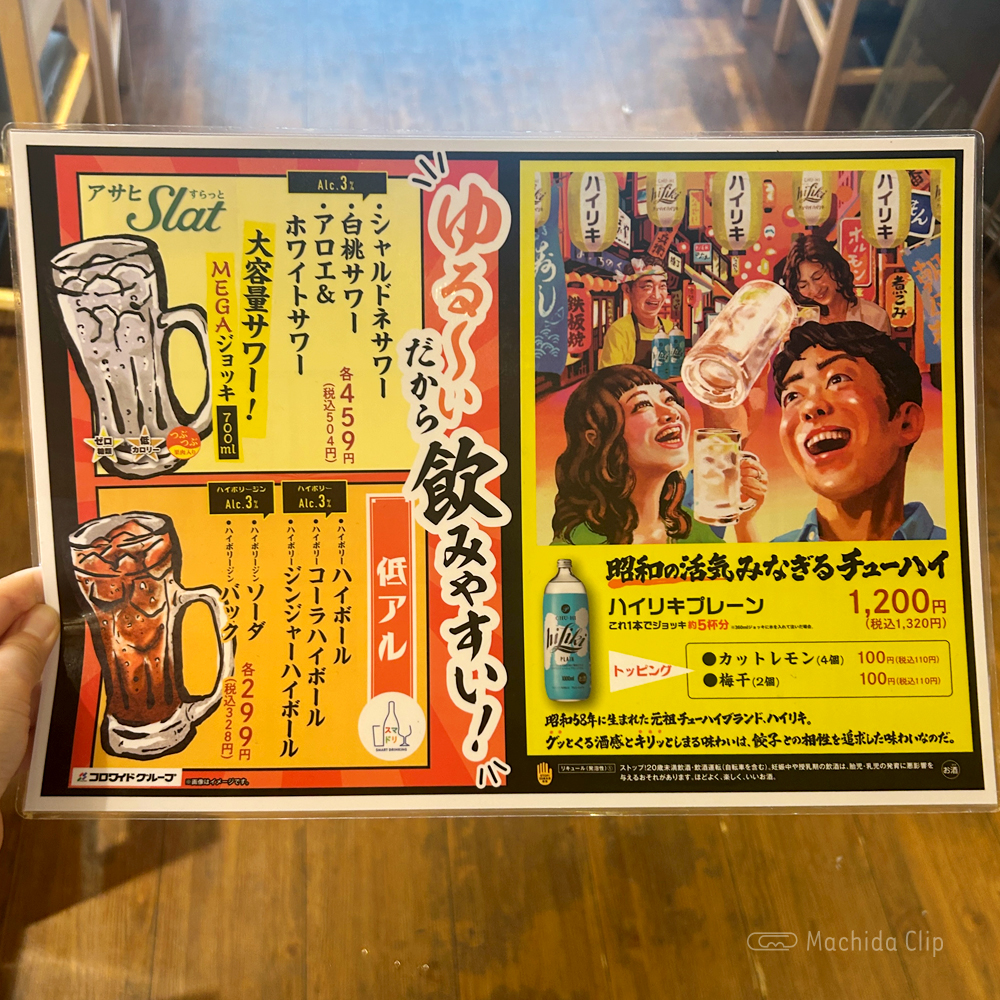 ゆる〜い
だから
飲みやすい!
アサヒ
Slat
すらっと
Alc.3%
・シャルドネサワー
・白桃サワー
・アロエ&
ホワイトサワー
各459円
(税込504円)
大容量サワー!
MEGAジョッキ
700ml
ゼロ
糖類
低
カロリー
つぶつぶ
果肉入り
低アル
ハイボリー
Alc.3%
・ハイボリー ハイボール
・ハイボリー コーラハイボール
・ハイボリー ジンジャーハイボール
ハイボリージン
Alc.3%
・ハイボリージン ソーダ
・ハイボリージン バック
各299円
(税込328円)
スマドリ
SMART DRINKING
コロワイドグループ
※画像はイメージです。
ハイリキ
hiLiki
ハイリキ
hiLiki
ハイリキ
寿し
鉄板焼
ホルモン
煮こみ
昭和の活気みなぎるチューハイ
hiLiki
PLAIN
ハイリキプレーン
1,200円
(税込1,320円)
これ1本でジョッキ約5杯分
トッピング
●カットレモン(4個) 100円(税込110円)
●梅干(2個) 100円(税込110円)
昭和58年に生まれた元祖チューハイブランド、ハイリキ。
グッとくる酒感とキリッとしまる味わいは、餃子との相性を追求した味わいなのだ。
リキュール(発泡性)①
ストップ!20歳未満飲酒・飲酒運転(自転車を含む)。妊娠中や授乳期の飲酒は、胎児・乳児の発育に悪影響を
与えるおそれがあります。ほどよく、楽しく、いいお酒。
お酒
Machida Clip